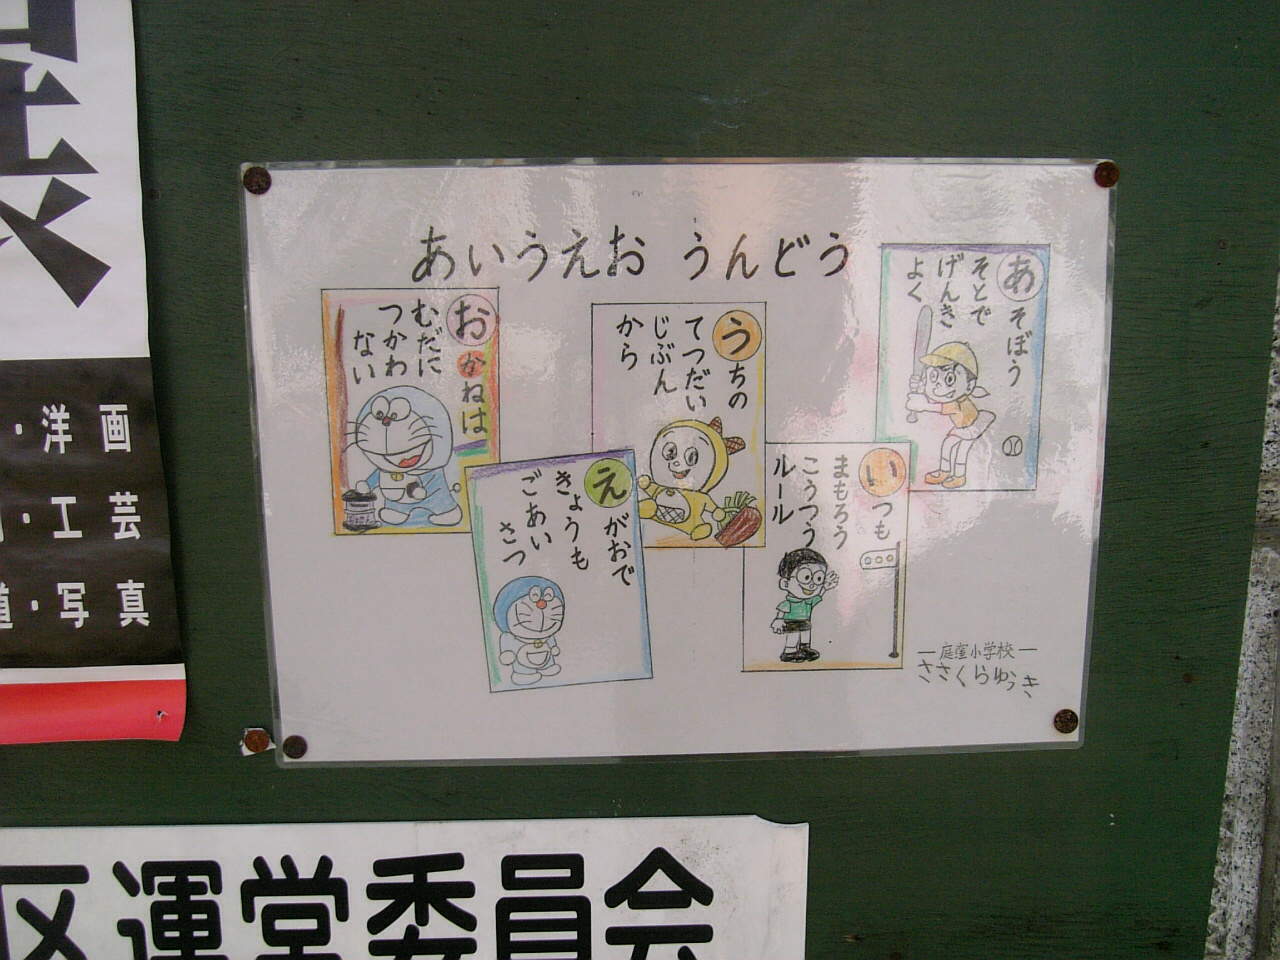 あいうえお うんどう
あそぼう
そとで
げんき
よく
いつも
まもろう
こうつう
ルール
うちの
てつだい
じぶん
から
えがおで
きょうも
ごあい
さつ
おかねは
むだに
つかわ
ない
―庭窪小学校―
ささくらゆうき
・洋画
・工芸
道・写真
区運営委員会